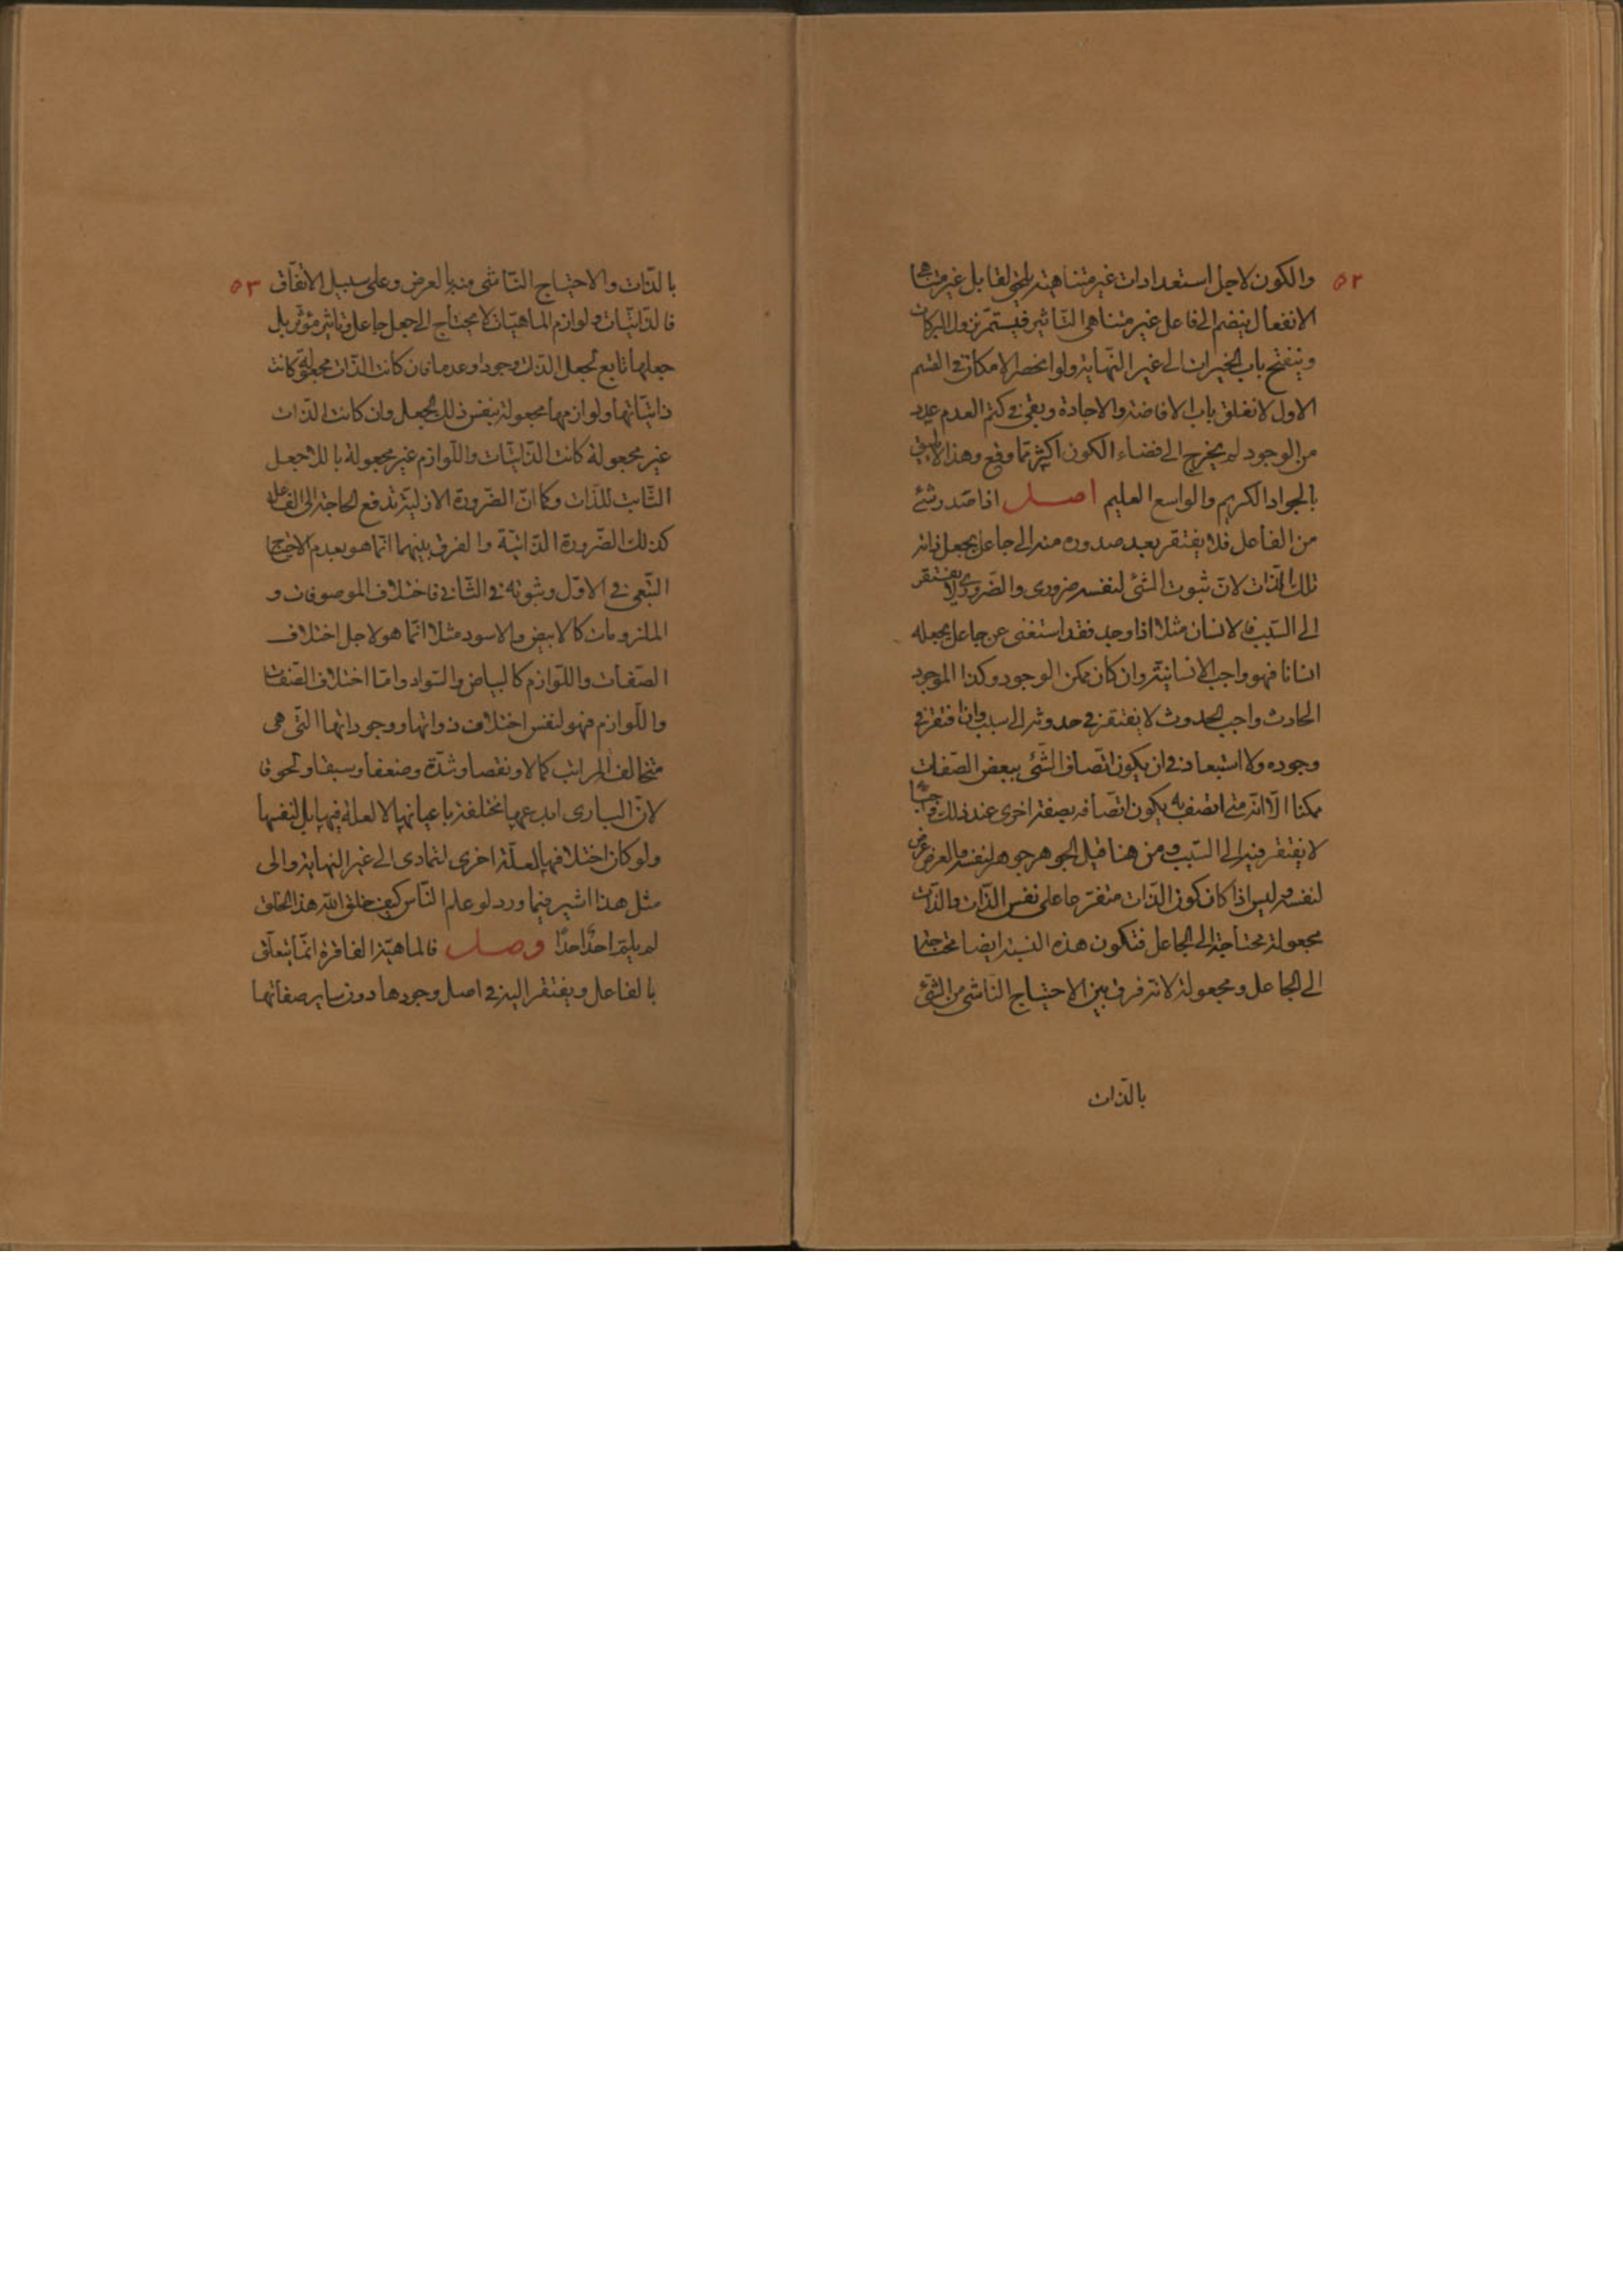 ٥٢
والكون لاجل استعدادات غير متناهية يلحق لقابل غير متناهى
الانفعال ينضم الى فاعل غير متناهى التاثير فيستمر نزول البركات
وينفتح باب الخيرات الى غير النهاية ولو انحصر الامكان فى القسم
الاول لانغلق باب الافاضة والاجادة وبقى فى كتم العدم عدد
من الوجود لم يخرج الى فضاء الكون اكثر مما وقع وهذا لا يليق
بالجواد الكريم والواسع العليم اصل اذا صدر شئ
من الفاعل فلا يفتقر بعد صدوره منه الى جاعل يجعل ذاته
تلك الذات لان ثبوت الشئ لنفسه ضرورى والضرورى لا يفتقر
الى السبب فالانسان مثلا اذا وجد فقد استغنى عن جاعل يجعله
انسانا فهو واجب الانسانية وان كان ممكن الوجود وكذا الموجود
الحادث واجب الحدوث لا يفتقر فى حدوثه الى سبب وان افتقر فى
وجوده ولا استبعاد فى ان يكون اتصاف الشئ ببعض الصفات
ممكنا الا انه متى اتصف به يكون اتصافه بصفة اخرى عند ذلك واجبا
لا يفتقر فيه الى السبب ومن هنا قيل الجوهر جوهر لنفسه والعرض عرض
لنفسه وليس اذا كان كون الذات متفرعا على نفس الذات والذات
مجعولة محتاجة الى الجاعل فتكون هذه النسبة ايضا محتاجة
الى الجاعل ومجعولة لانه فرق بين الاحتياج الناشى من الشئ
بالذات
٥٣
بالذات والاحتياج الناشى منه بالعرض وعلى سبيل الاتفاق
فالذاتيات ولوازم الماهيات لا يحتاج الى جعل جاعل وتاثير مؤثر بل
جعلها تابع لجعل الذات وجودا وعدما فان كانت الذات مجعولة كانت
ذاتياتها ولوازمها مجعولة بنفس ذلك الجعل وان كانت الذات
غير مجعولة كانت الذاتيات واللوازم غير مجعولة باللاجعل
الثابت للذات وكما ان الضرورة الازلية تدفع الحاجة الى الفاعل
كذلك الضرورة الذاتية والفرق بينهما انما هو بعدم الاحتياج
التبعى فى الاول وثبوته فى الثانى فاختلاف الموصوفات و
الملزومات كالابيض والاسود مثلا انما هو لاجل اختلاف
الصفات واللوازم كالبياض والسواد واما اختلاف الصفات
واللوازم فهو لنفس اختلاف ذواتها ووجوداتها التى هى
متخالف المراتب كمالا ونقصا وشدة وضعفا وسبقا ولحوقا
لان البارى ابدعها مختلفة باعيانها لا لعلة فيها بل لنفسها
ولو كان اختلافها لعلة اخرى لتمادى الى غير النهاية والى
مثل هذا اشير فيما ورد لو علم الناس كيف خلق الله هذا الخلق
لم يلم احد احدا وصل فالماهية الفاقرة انما يتعلق
بالفاعل ويفتقر اليه فى اصل وجودها دون ساير صفاتها